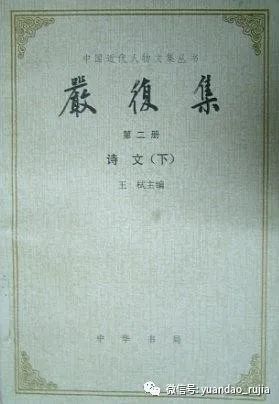 中国近代人物文集丛书
嚴復集
第二册
诗文(下)
王栻主编
中华书局
微信号: yuandao_rujia